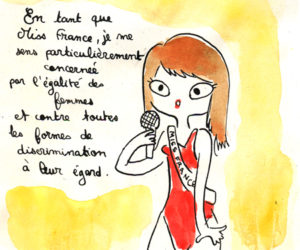 En tant que
Miss France, je me
sens particulièrement
concernée
par l'égalité des
femmes
et contre toutes
les formes de
discrimination
à leur égard.
MISS FRANCE